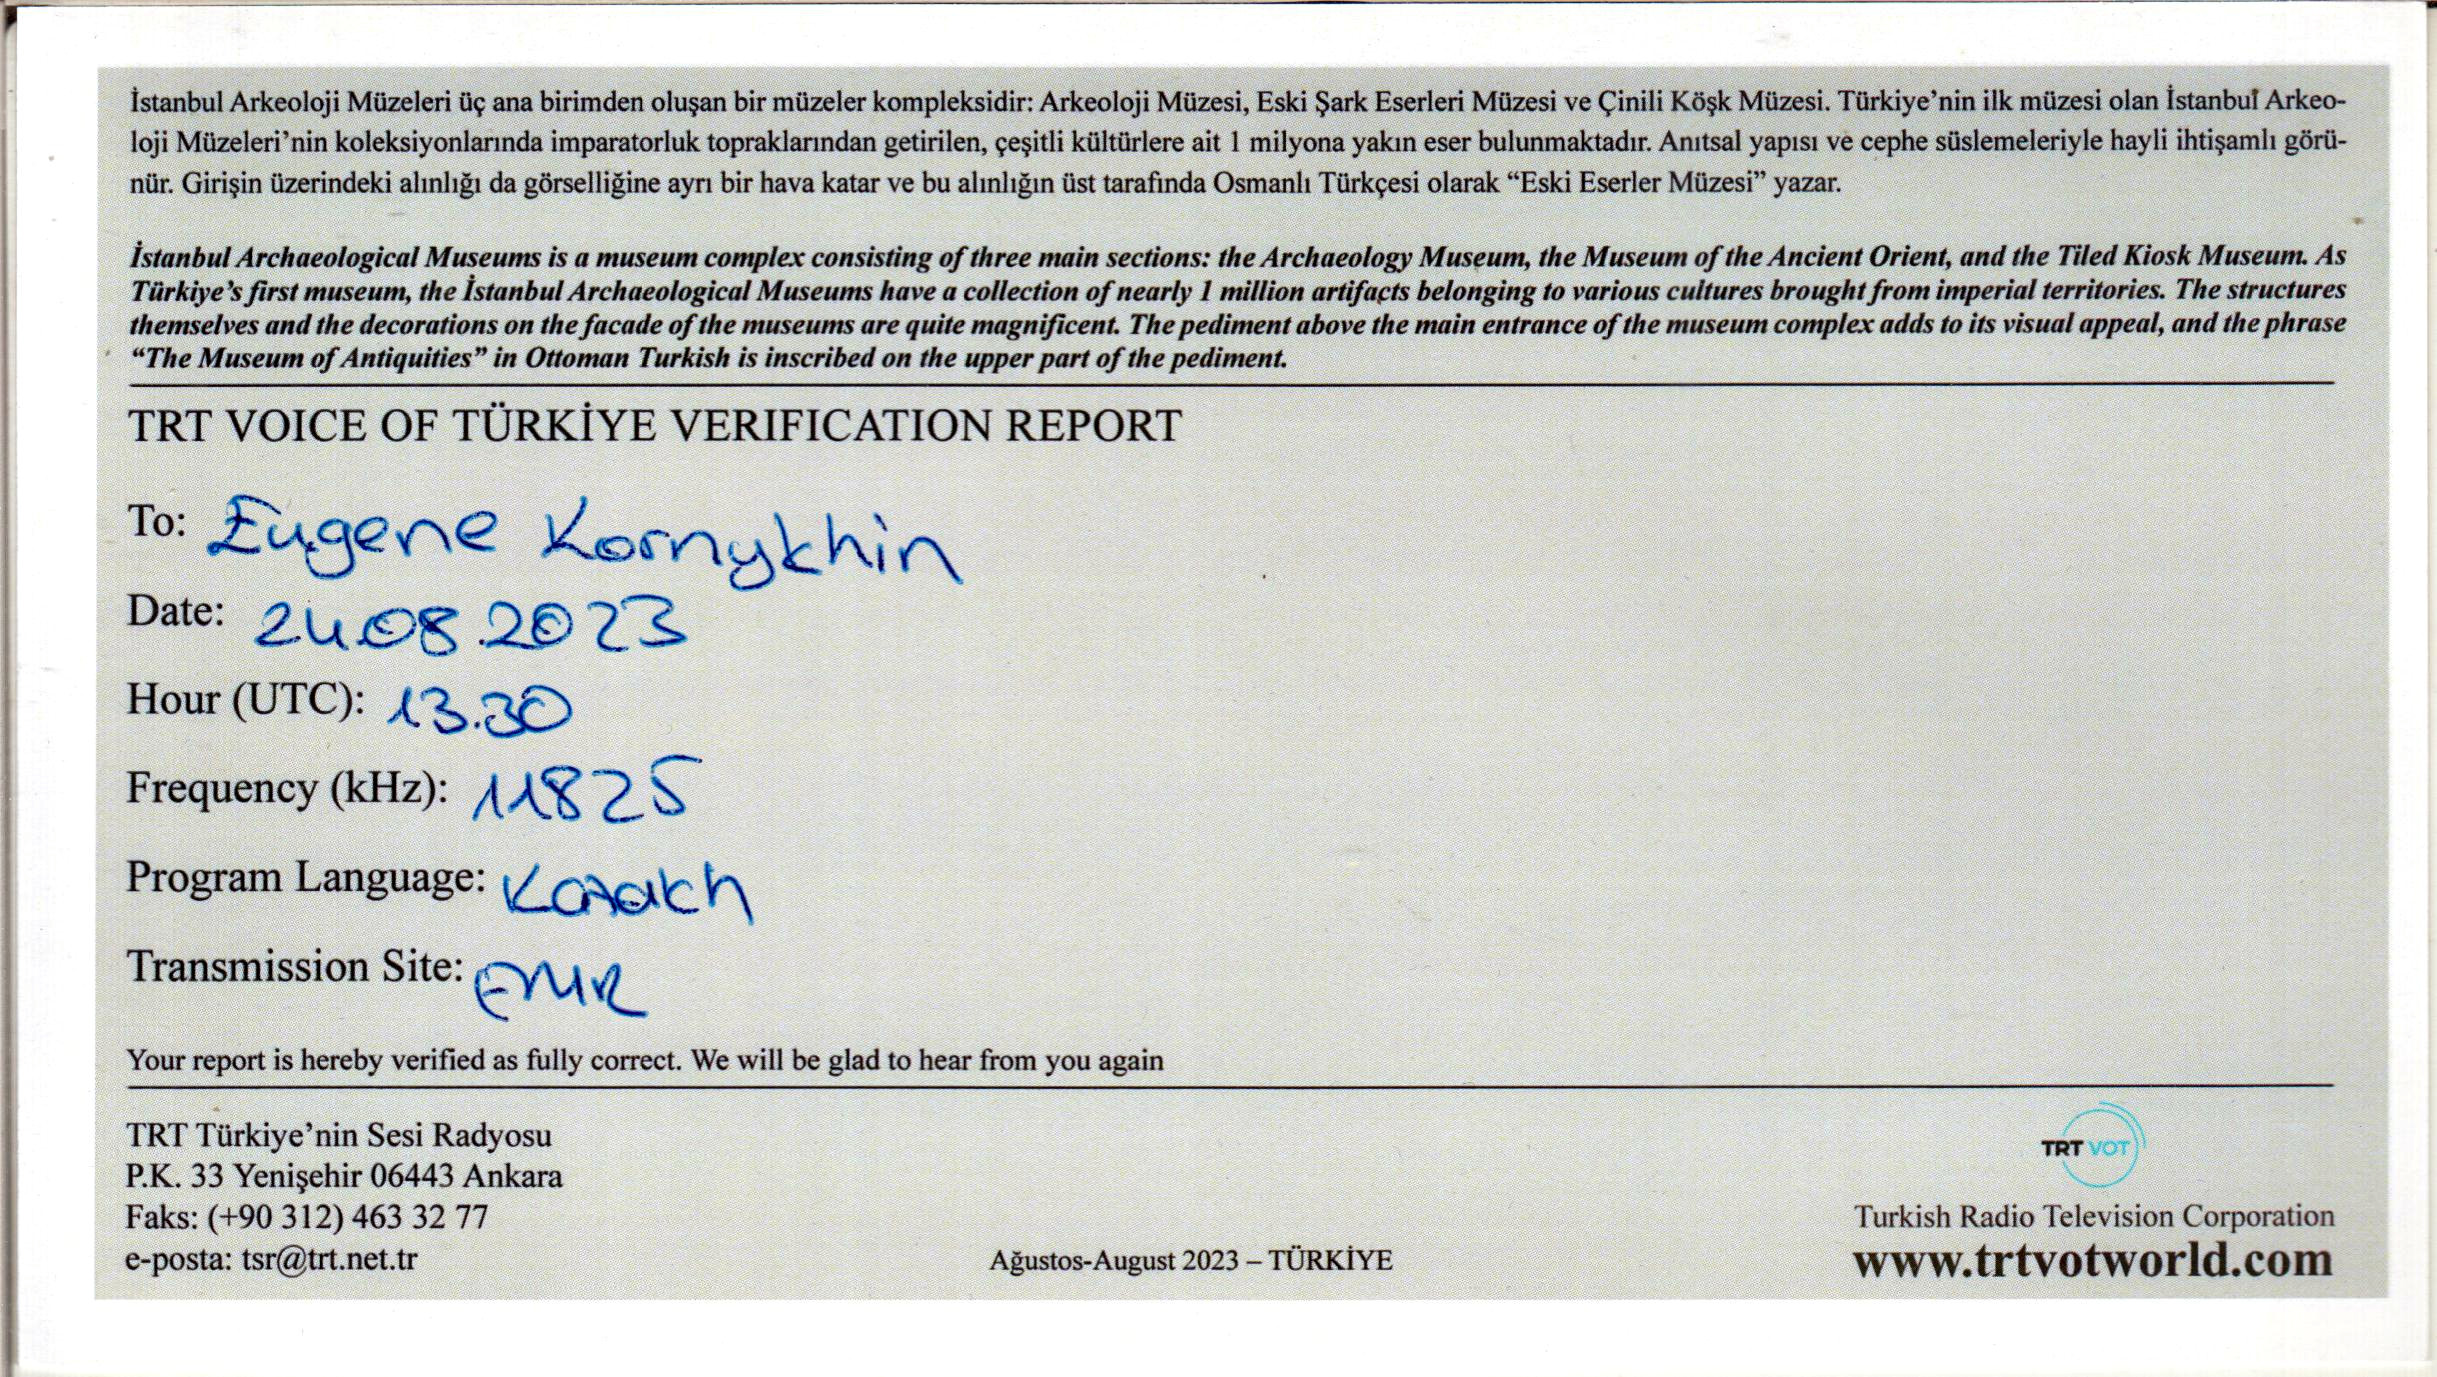 İstanbul Arkeoloji Müzeleri üç ana birimden oluşan bir müzeler kompleksidir: Arkeoloji Müzesi, Eski Şark Eserleri Müzesi ve Çinili Köşk Müzesi. Türkiye'nin ilk müzesi olan İstanbul Arkeo-
loji Müzeleri'nin koleksiyonlarında imparatorluk topraklarından getirilen, çeşitli kültürlere ait 1 milyona yakın eser bulunmaktadır. Anıtsal yapısı ve cephe süslemeleriyle hayli ihtişamlı görü-
nür. Girişin üzerindeki alınlığı da görselliğine ayrı bir hava katar ve bu alınlığın üst tarafında Osmanlı Türkçesi olarak “Eski Eserler Müzesi” yazar.
İstanbul Archaeological Museums is a museum complex consisting of three main sections: the Archaeology Museum, the Museum of the Ancient Orient, and the Tiled Kiosk Museum. As
Türkiye's first museum, the İstanbul Archaeological Museums have a collection of nearly 1 million artifacts belonging to various cultures brought from imperial territories. The structures
themselves and the decorations on the facade of the museums are quite magnificent. The pediment above the main entrance of the museum complex adds to its visual appeal, and the phrase
“The Museum of Antiquities” in Ottoman Turkish is inscribed on the upper part of the pediment.
TRT VOICE OF TÜRKİYE VERIFICATION REPORT
To: Eugene Kornykhin
Date: 24.08.2023
Hour (UTC): 13.30
Frequency (kHz): 11825
Program Language: Kazakh
Transmission Site: EMR
Your report is hereby verified as fully correct. We will be glad to hear from you again
TRT Türkiye'nin Sesi Radyosu
P.K. 33 Yenişehir 06443 Ankara
Faks: (+90 312) 463 32 77
e-posta: tsr@trt.net.tr
Ağustos-August 2023 – TÜRKİYE
TRT VOT
Turkish Radio Television Corporation
www.trtvotworld.com